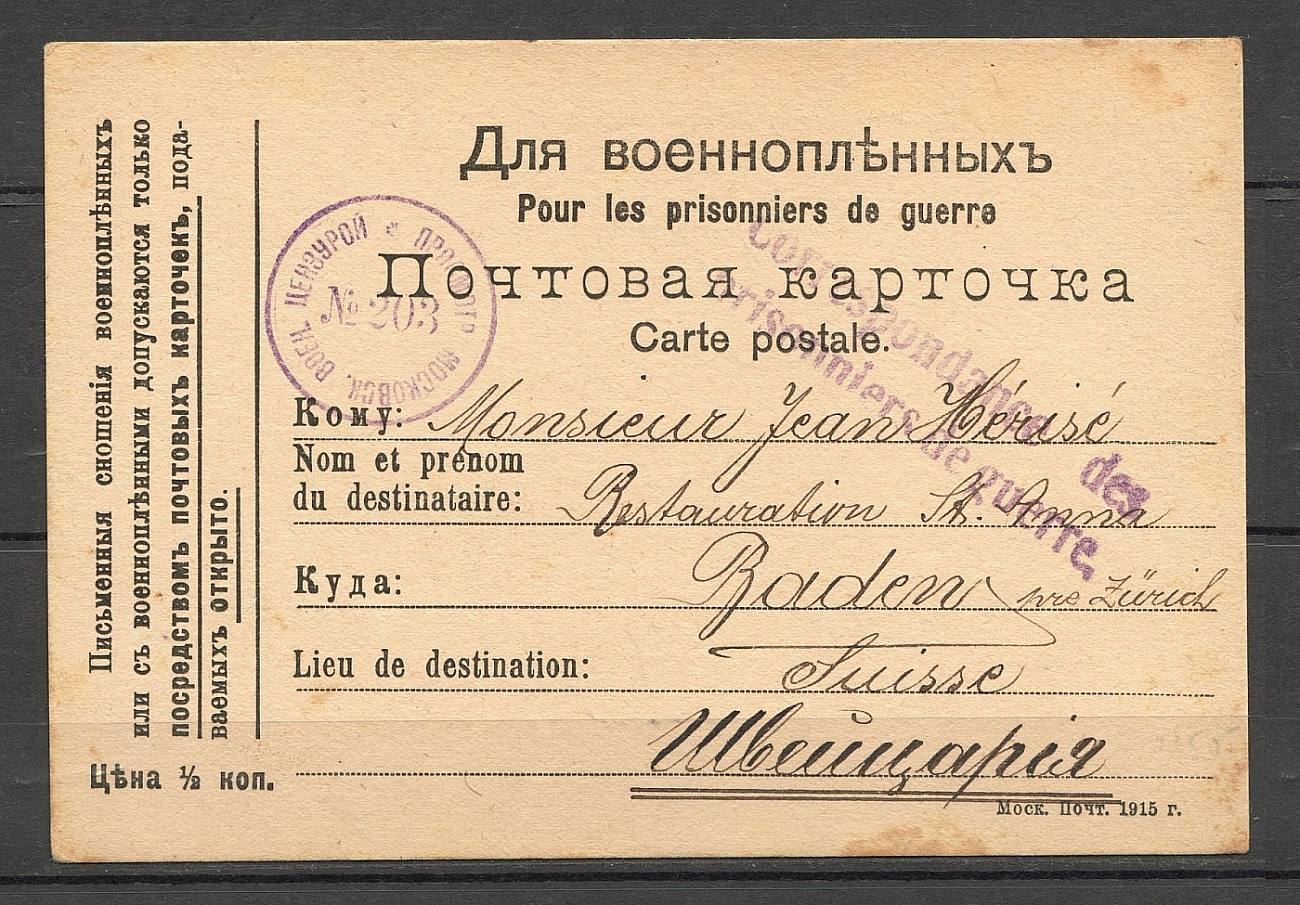 Письменныя сношенія военноплѣнныхъ
или съ военноплѣнными допускаются только
посредствомъ почтовыхъ карточекъ, пода-
ваемыхъ открыто.
Цѣна ½ коп.
Для военноплѣнныхъ
Pour les prisonniers de guerre
Почтовая карточка
Carte postale.
МОСКОВСК. ВОЕН. ЦЕНЗУРОЙ *
№ 203
Correspondance des
prisonniers de guerre.
Кому: Monsieur Jean Hérisé
Nom et prénom
du destinataire: Restauration St. Anna
Куда: Baden pre Zürich
Lieu de destination: Suisse
Швейцарія
Моск. Почт. 1915 г.